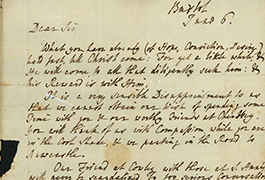 Bristol
June 6.
Dear Sir
What you have already (of Hope, Conviction, Desire)
hold fast, till Christ come: For yet a little while, &
He will come to all that diligently seek him: &
his Reward is with Him.
It is a very sensible Disappointment to us
that we cannot obtain our Wish of spending some
Time with you & our worthy Friends at
You will think of us with Compassion, while you are
in the Cool Shade, & we parting in the Road to
Newcastle.
Our Friend at Cowley with those at S.